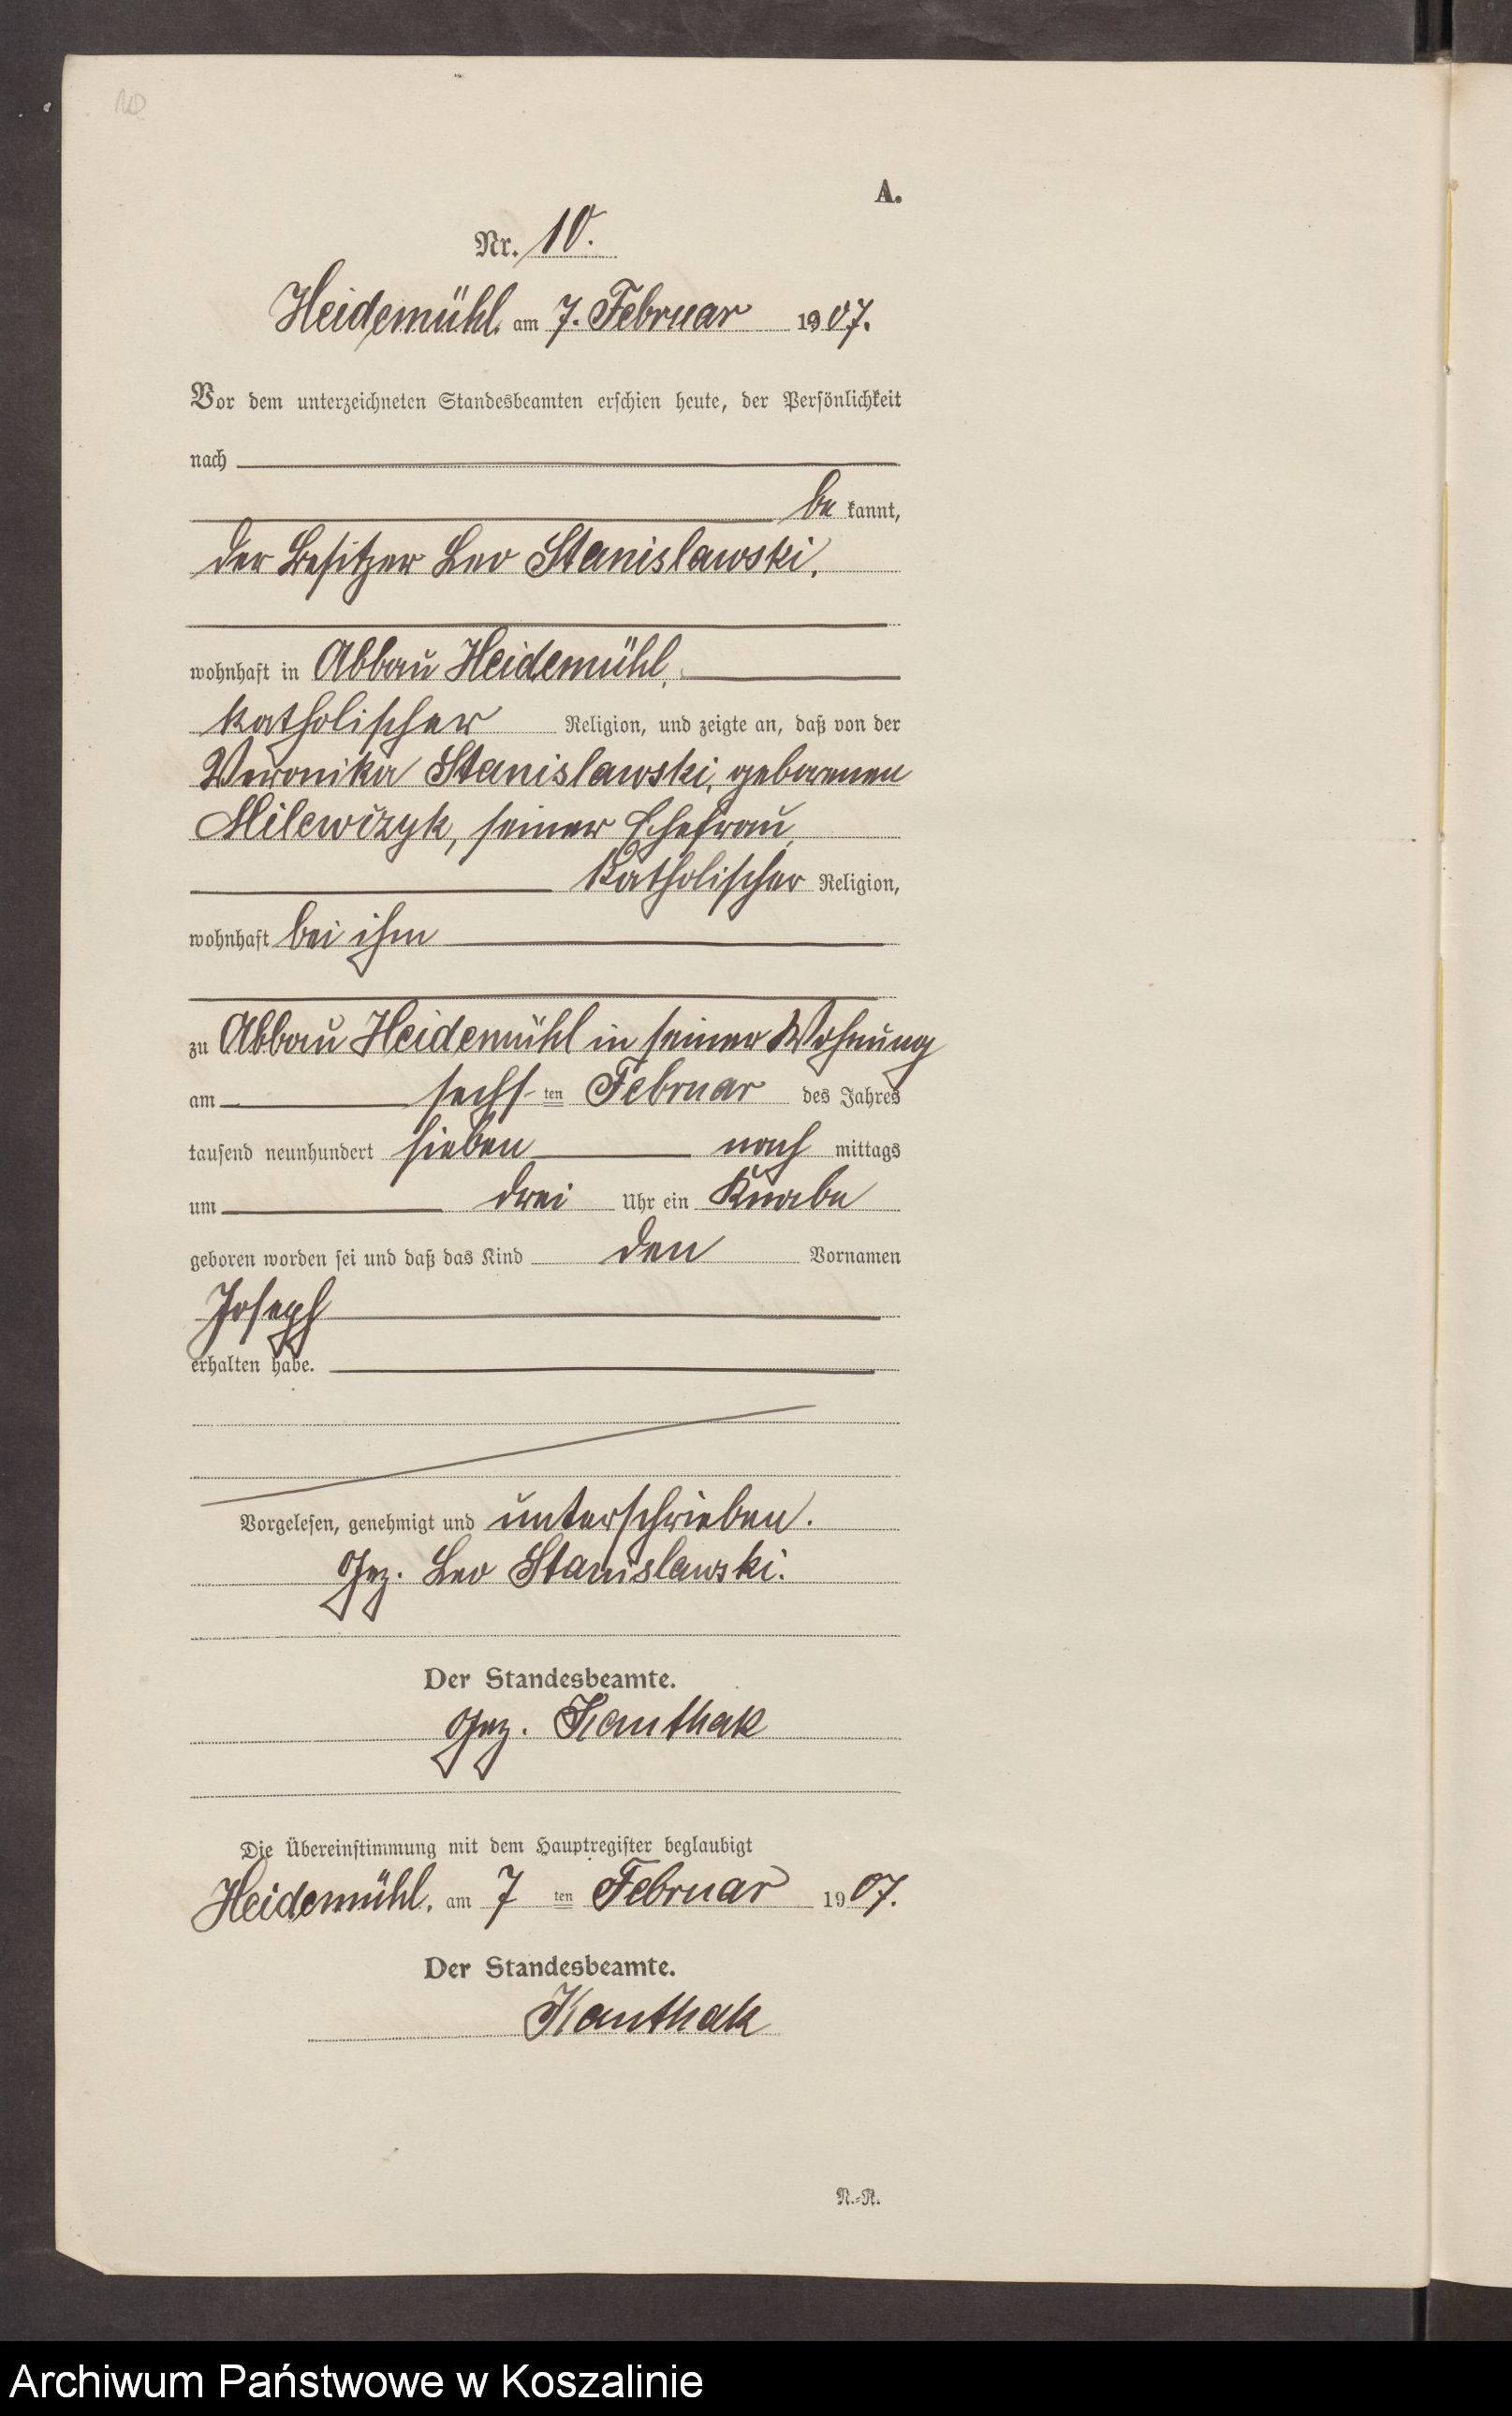 10
A.
Nr. 10.
Heidemühl, am 7. Februar 1907.
Vor dem unterzeichneten Standesbeamten erschien heute, der Persönlichkeit
nach
be kannt,
der Besitzer Leo Stanislawski,
wohnhaft in Abbau Heidemühl,
katholischer Religion, und zeigte an, daß von der
Veronika Stanislawski, geborenen
Milewizyk, seiner Ehefrau,
katholischer Religion,
wohnhaft bei ihm
zu Abbau Heidemühl in seiner Wohnung
am sechs- ten Februar des Jahres
tausend neunhundert sieben nach mittags
um drei Uhr ein Knabe
geboren worden sei und daß das Kind den Vornamen
Joseph
erhalten habe.
Vorgelesen, genehmigt und unterschrieben.
Gez. Leo Stanislawski.
Der Standesbeamte.
Gez. Kanthak
Die Übereinstimmung mit dem Hauptregister beglaubigt
Heidemühl, am 7 ten Februar 1907.
Der Standesbeamte.
Kanthak
N.-R.
Archiwum Państwowe w Koszalinie